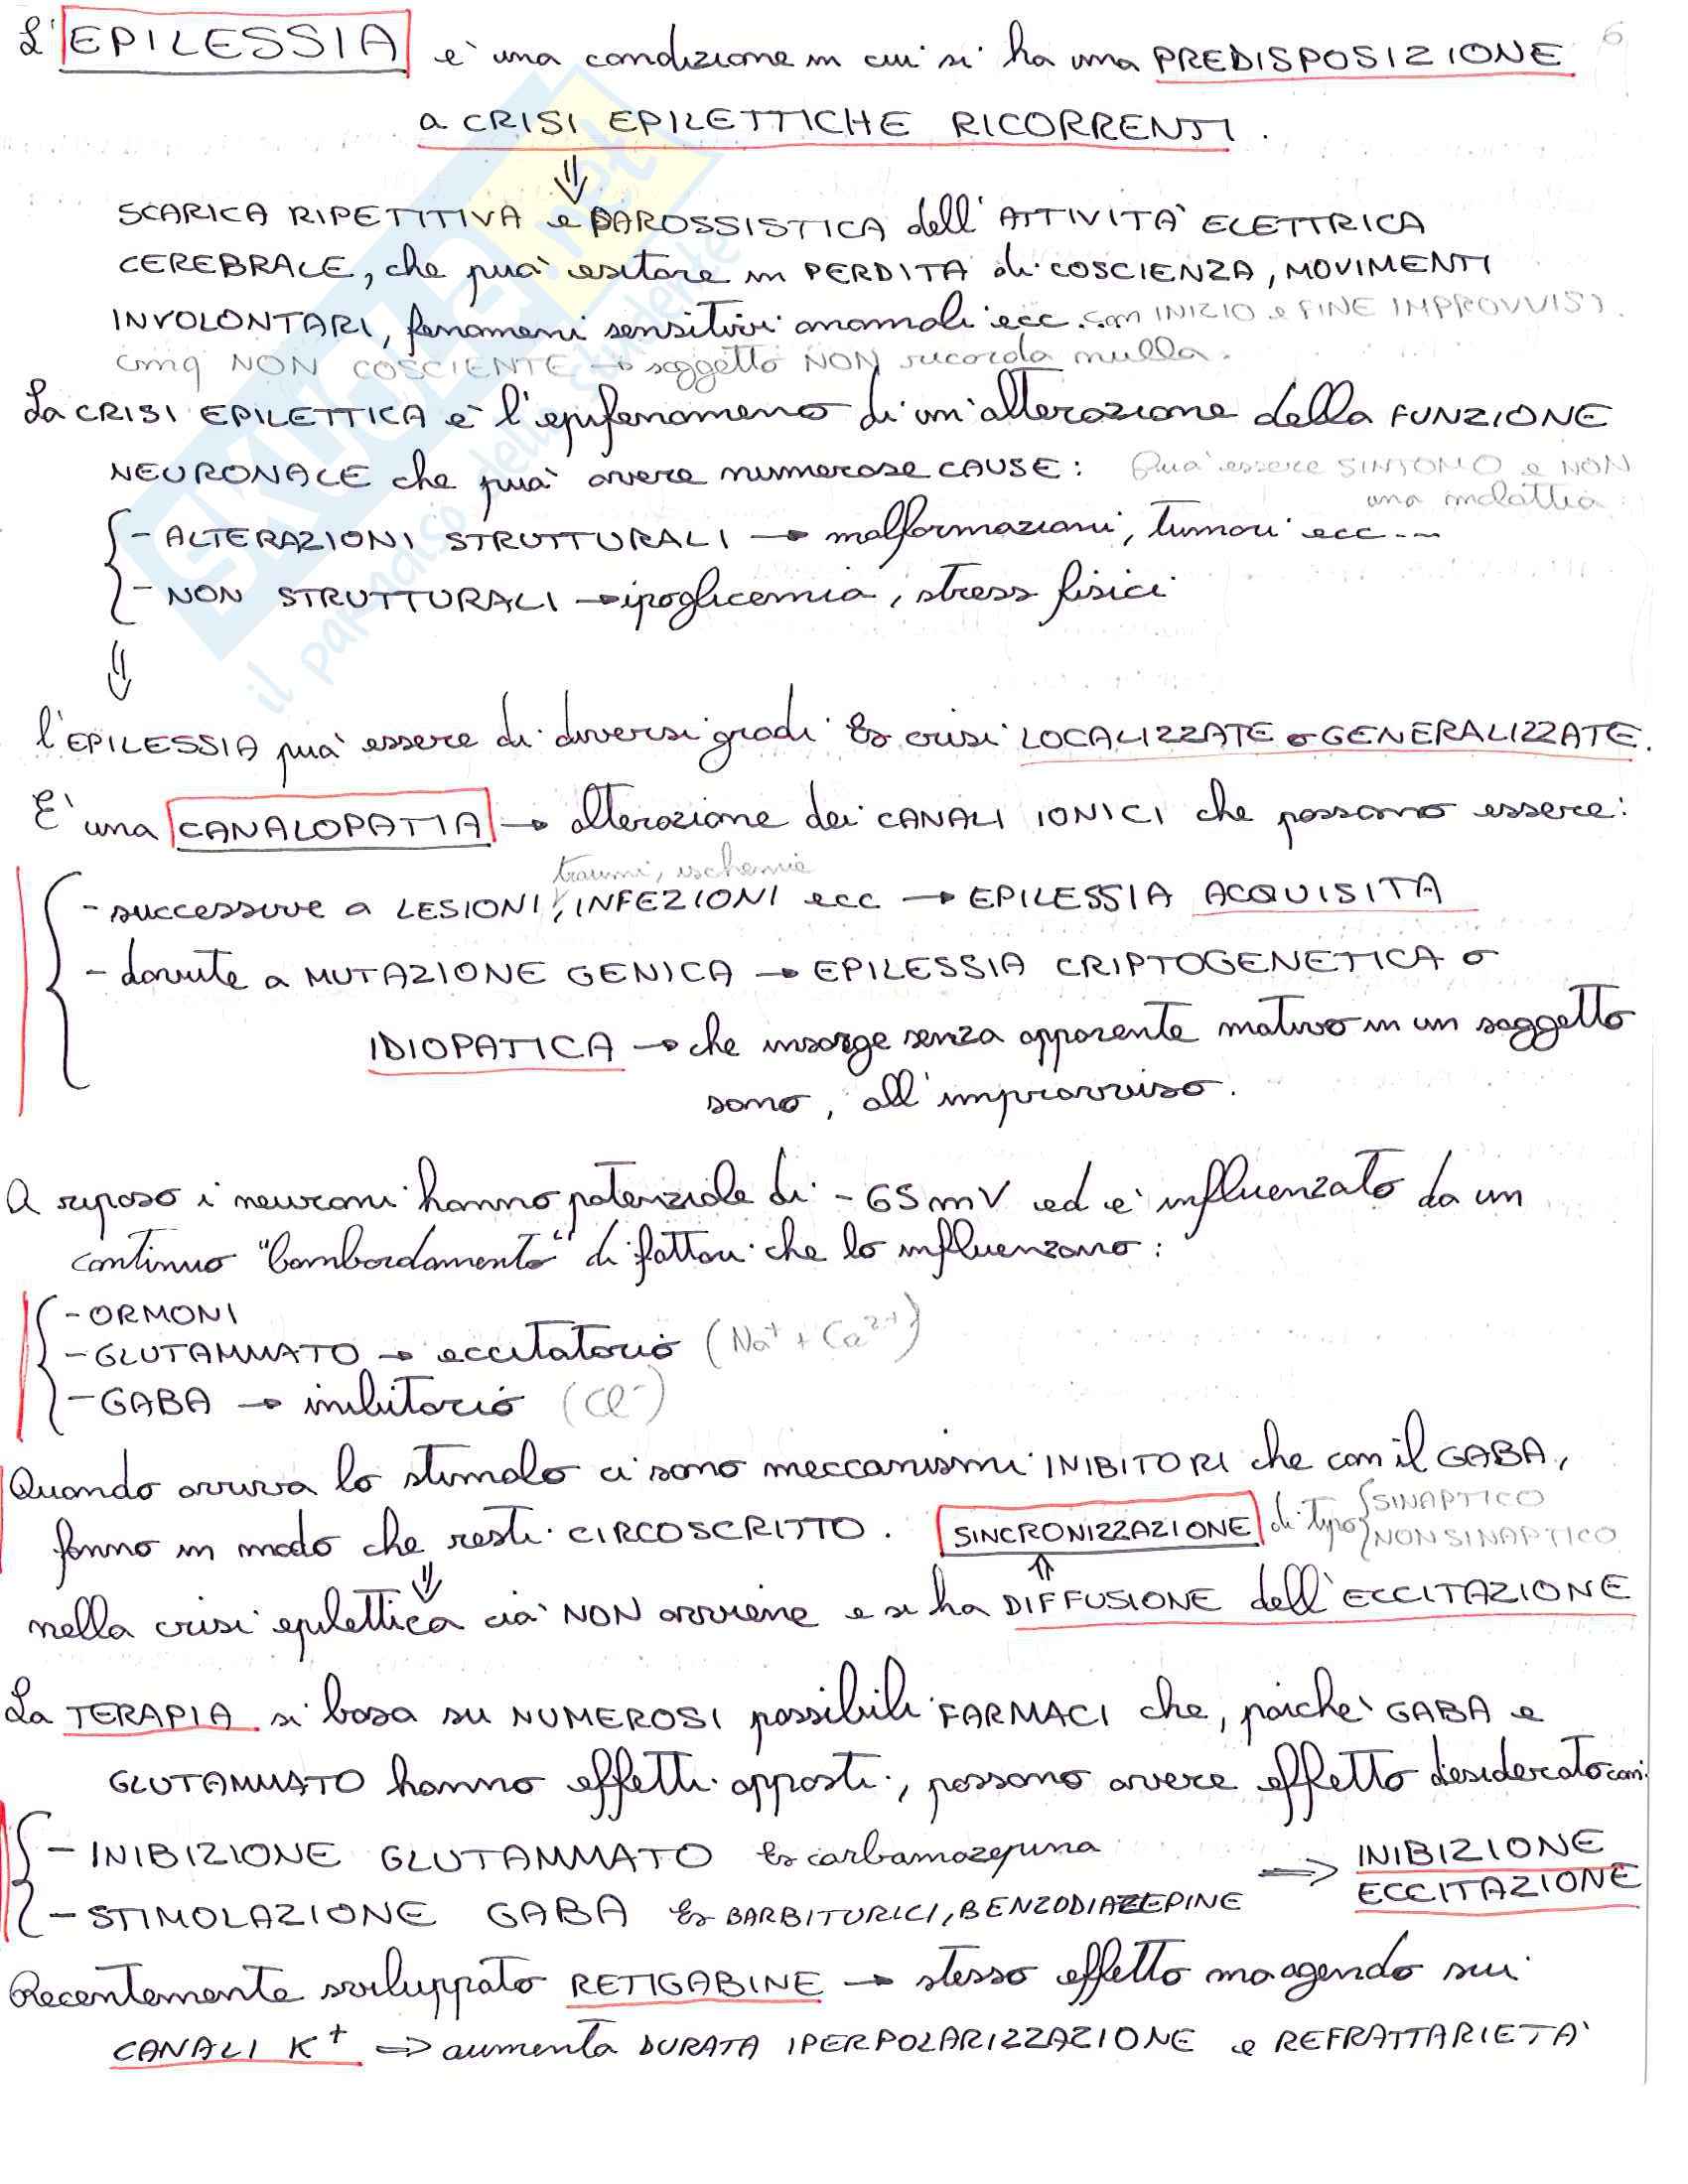 6
L'EPILESSIA è una condizione in cui si ha una PREDISPOSIZIONE
a CRISI EPILETTICHE RICORRENTI.
⇓
SCARICA RIPETITIVA e PAROSSISTICA dell'ATTIVITÀ ELETTRICA
CEREBRALE, che può esitare in PERDITA di COSCIENZA, MOVIMENTI
INVOLONTARI, fenomeni sensitivi anomali ecc. con INIZIO e FINE IMPROVVISI.
cmq NON COSCIENTE → soggetto NON ricorda nulla.
La CRISI EPILETTICA è l'epifenomeno di un'alterazione della FUNZIONE
NEURONALE che può avere numerose CAUSE: Può essere SINTOMO e NON
una malattia.
- ALTERAZIONI STRUTTURALI → malformazioni, tumori ecc...
- NON STRUTTURALI → ipoglicemia, stress fisici
⇓
l'EPILESSIA può essere di diversi gradi Es crisi LOCALIZZATE o GENERALIZZATE.
E' una CANALOPATIA → alterazione dei CANALI IONICI che possono essere:
traumi, ischemie
- successive a LESIONI, INFEZIONI ecc → EPILESSIA ACQUISITA
- dovute a MUTAZIONE GENICA → EPILESSIA CRIPTOGENETICA o
IDIOPATICA → che insorge senza apparente motivo in un soggetto
sano, all'improvviso.
A riposo i neuroni hanno potenziale di -65mV ed è influenzato da un
continuo "bombardamento" di fattori che lo influenzano:
- ORMONI
- GLUTAMMATO → eccitatorio (Na⁺ + Ca²⁺)
- GABA → inibitorio (Cl⁻)
Quando arriva lo stimolo ci sono meccanismi INIBITORI che con il GABA,
fanno in modo che resti CIRCOSCRITTO. SINCRONIZZAZIONE di tipo { SINAPTICO
NON SINAPTICO
⇓ ⇑
nella crisi epilettica ciò NON avviene e si ha DIFFUSIONE dell'ECCITAZIONE
La TERAPIA si basa su NUMEROSI possibili FARMACI che, poichè GABA e
GLUTAMMATO hanno effetti opposti, possono avere effetto desiderato con:
- INIBIZIONE GLUTAMMATO Es carbamazepina ⇒ INIBIZIONE
ECCITAZIONE
- STIMOLAZIONE GABA Es BARBITURICI, BENZODIAZEPINE
Recentemente sviluppato RETIGABINE → stesso effetto ma agendo sui
CANALI K⁺ ⇒ aumenta DURATA IPERPOLARIZZAZIONE e REFRATTARIETA'
SKUOLA.net
il paradiso dello studente